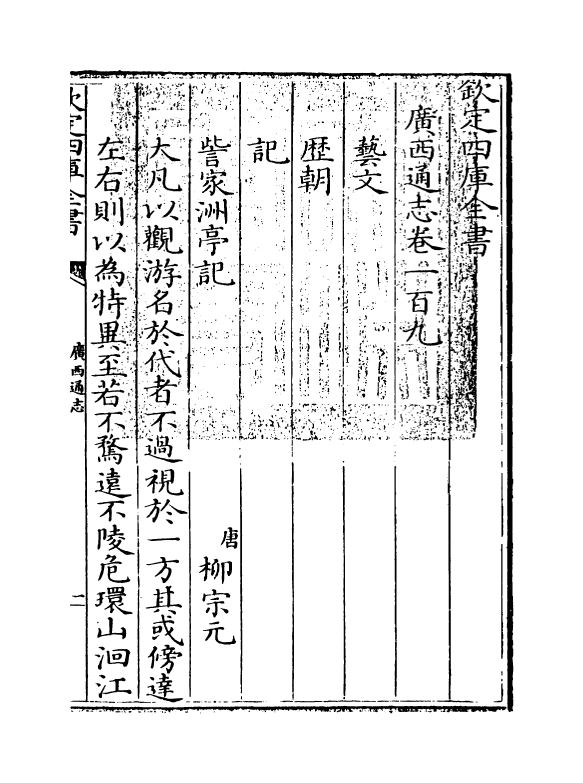 欽定四庫全書
廣西通志卷一百九
藝文
歴朝
記
訾家洲亭記 唐 柳宗元
大凡以觀游名於代者不過視於一方其或傍達
左右則以為特異至若不騖遠不陵危環山洄江
欽定四庫全書
廣西通志